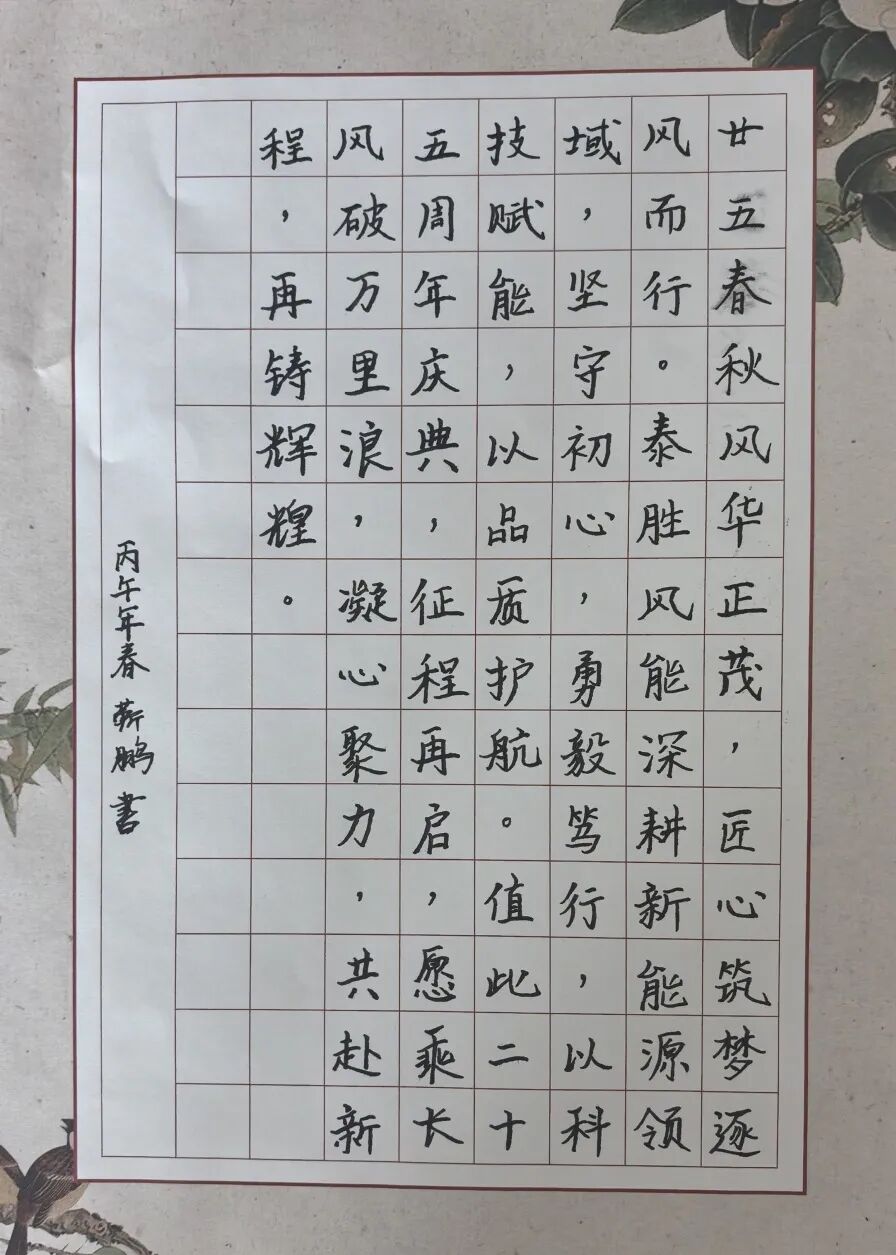 廿五春秋风华正茂，匠心筑梦逐
风而行。泰胜风能深耕新能源领
域，坚守初心，勇毅笃行，以科
技赋能，以品质护航。值此二十
五周年庆典，征程再启，愿乘长
风破万里浪，凝心聚力，共赴新
程，再铸辉煌。
丙午年春 靳鹏 书